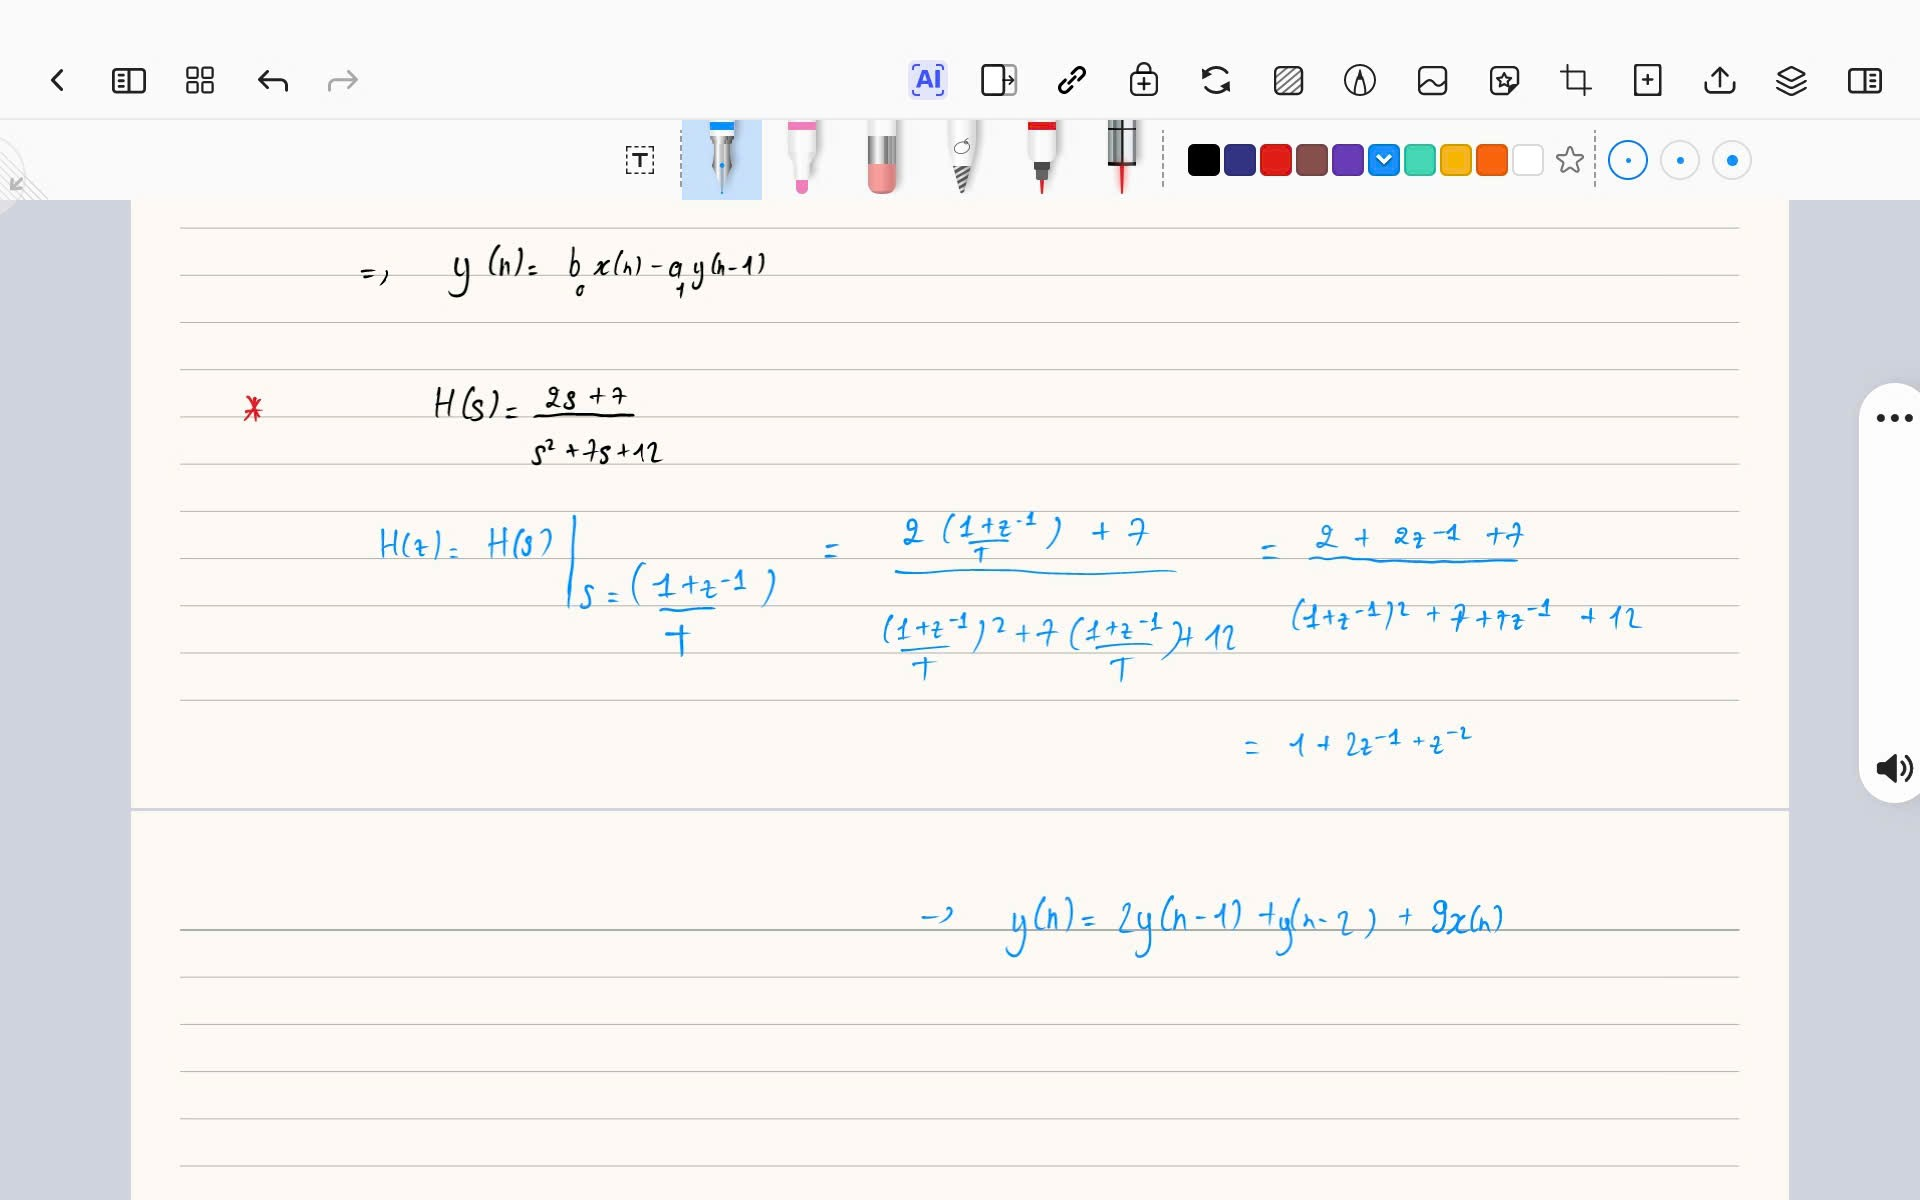 AI
T
=> y(n) = b₀ x(n) - a₁ y(n-1)
* H(s) = (2s + 7) / (s² + 7s + 12)
H(z) = H(s) | s = ((1 + z⁻¹) / T) = (2 ((1 + z⁻¹) / T) + 7) / (((1 + z⁻¹) / T)² + 7 ((1 + z⁻¹) / T) + 12) = (2 + 2z⁻¹ + 7) / ((1 + z⁻¹)² + 7 + 7z⁻¹ + 12)
= 1 + 2z⁻¹ + z⁻²
-> y(n) = 2y(n-1) + y(n-2) + 9x(n)